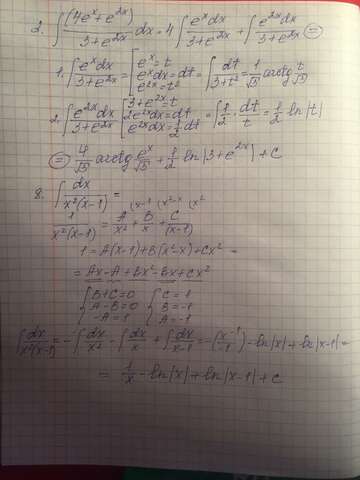 2. ∫ (4e^x + e^{2x}) / (3+e^{2x}) dx = 4 ∫ e^x dx / (3+e^{2x}) + ∫ e^{2x} dx / (3+e^{2x}) ⊜
1. ∫ e^x dx / (3+e^{2x}) = [e^x = t
e^x dx = dt
e^{2x} = t² = ∫ dt / (3+t²) = 1/√3 arctg t/√3
2. ∫ e^{2x} dx / (3+e^{2x}) [3+e^{2x} = t
2e^{2x} dx = dt
e^{2x} dx = 1/2 dt = ∫ 1/2 · dt/t = 1/2 ln|t|
⊜ 4/√3 arctg e^x/√3 + 1/2 ln|3+e^{2x}| + C
8. ∫ dx / x²(x-1) =
(x-1 (x²-x (x²
1 / x²(x-1) = A/x² + B/x + C/(x-1)
1 = A(x-1) + B(x²-x) + Cx² =
= Ax - A + Bx² - Bx + Cx²
{ B+C=0 { C=1
A-B=0 B=-1
-A=1 A=-1
∫ dx / x²(x-1) = -∫ dx/x² - ∫ dx/x + ∫ dx/(x-1) = -(x^{-1}/-1) - ln|x| + ln|x-1| =
= 1/x - ln|x| + ln|x-1| + C